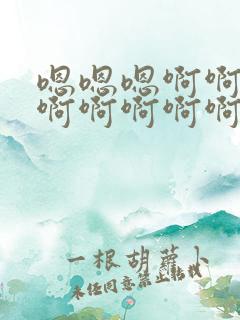 嗯嗯嗯啊啊
啊啊啊啊啊
一根胡萝卜
未经同意禁止转载